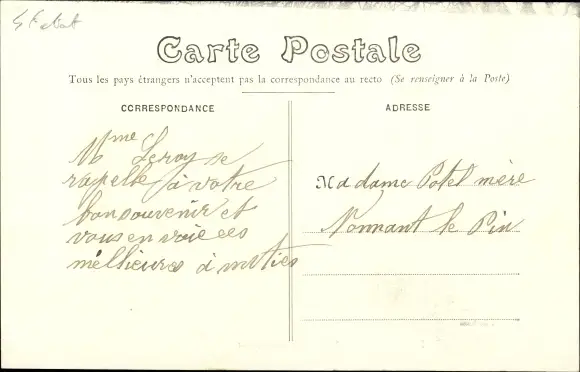 Carte Postale
Tous les pays étrangers n'acceptent pas la correspondance au recto (Se renseigner à la Poste)
CORRESPONDANCE
Mme Leroy se
rapelle à votre
bon souvenir et
vous envoie ces
mellieures amities
ADRESSE
Madame Potel mère
Nonnant le Pin